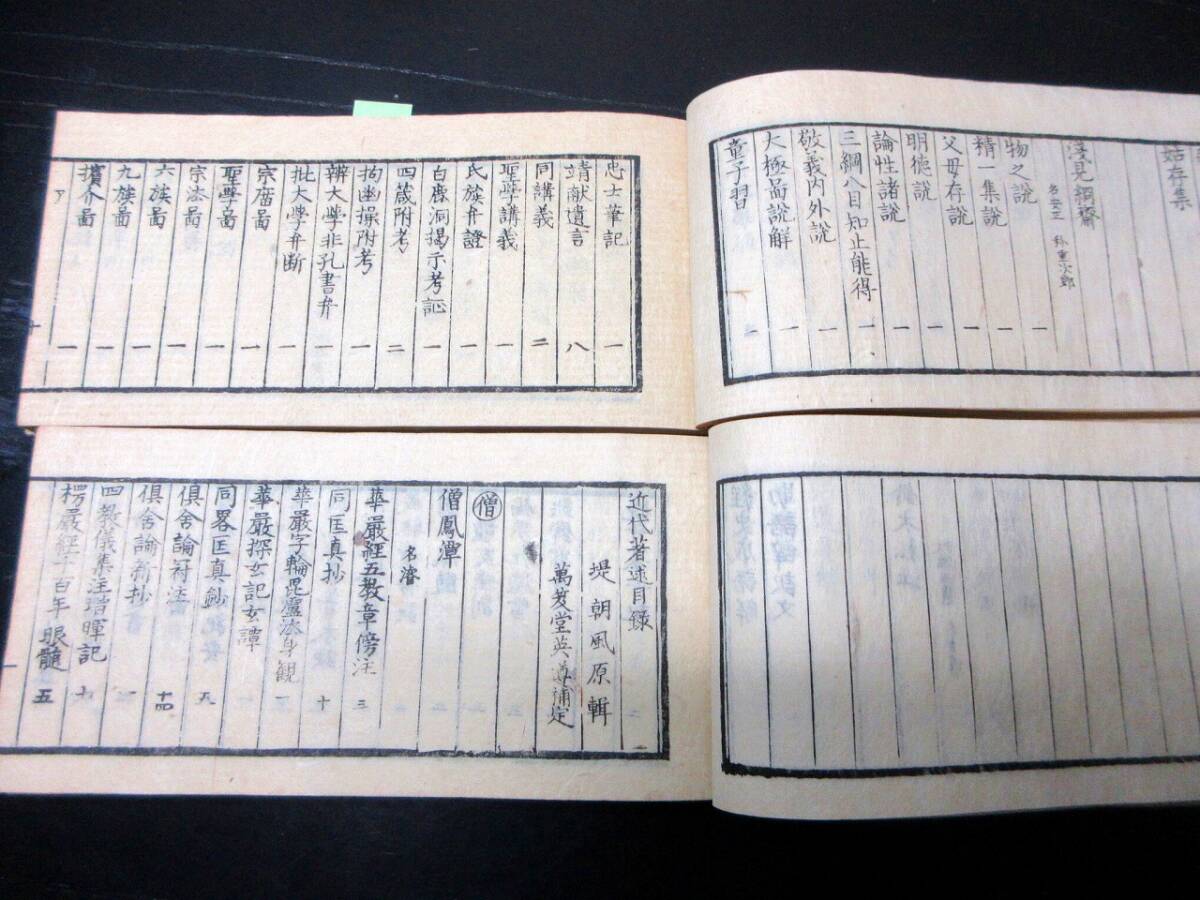 姑存集
淺見絅齋 名安正 称重次郎
物之説 一
精一集説 一
父母存説 一
明德説 一
論性諸説 一
三綱八目知止能得 一
敬義内外説 一
大極啚説解 一
童子習 一
忠士筆記 一
靖献遺言 八
同講義 二
聖學講義 一
氏族弁證 一
白鹿洞揭示考証 一
四箴附考 二
拘幽操附考 一
辨大學非孔書弁 一
批大学弁断 一
宗庿啚 一
聖學啚 一
宗法啚 一
六族啚 一
九族啚 一
擯介啚 一
近代著述目録
堤朝風原輯
萬笈堂英遵補定
僧
僧鳳潭 名濬
華嚴經五教章傍注 三
同匡真抄 十
華嚴字輪毘盧法身観 一
華嚴探玄記玄譚 一
同畧匡真鈔 九
倶舎論冠注 十四
倶舎論新抄 一
四教儀集注増暉記 十
楞嚴經千百年眼髓 五